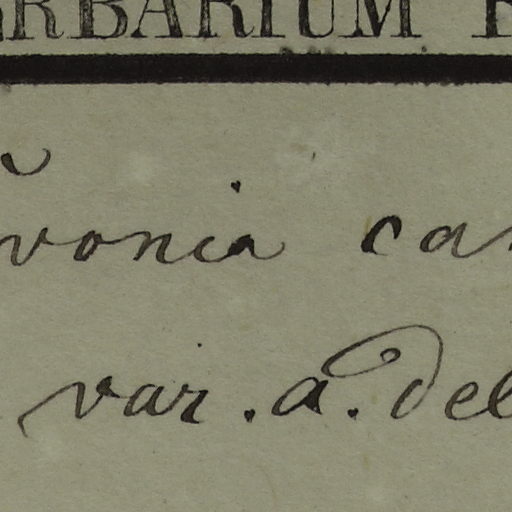 ERBARIUM
vonia ca
var. a. del